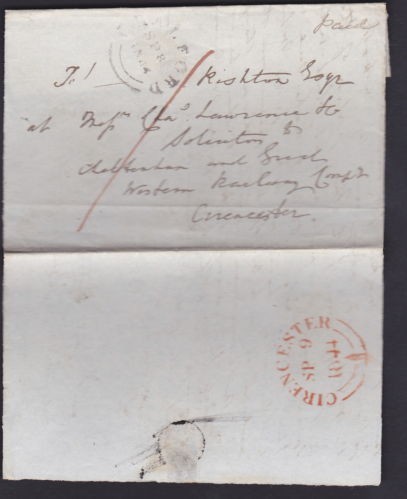 Paid
SP 8
1844
To
Rishton Esqr
at Messrs Chas Lawrence &
Solicitor to
Cheltenham and Great
Western Railway Compy
Cirencester.
CIRENCESTER
SP 9
1844